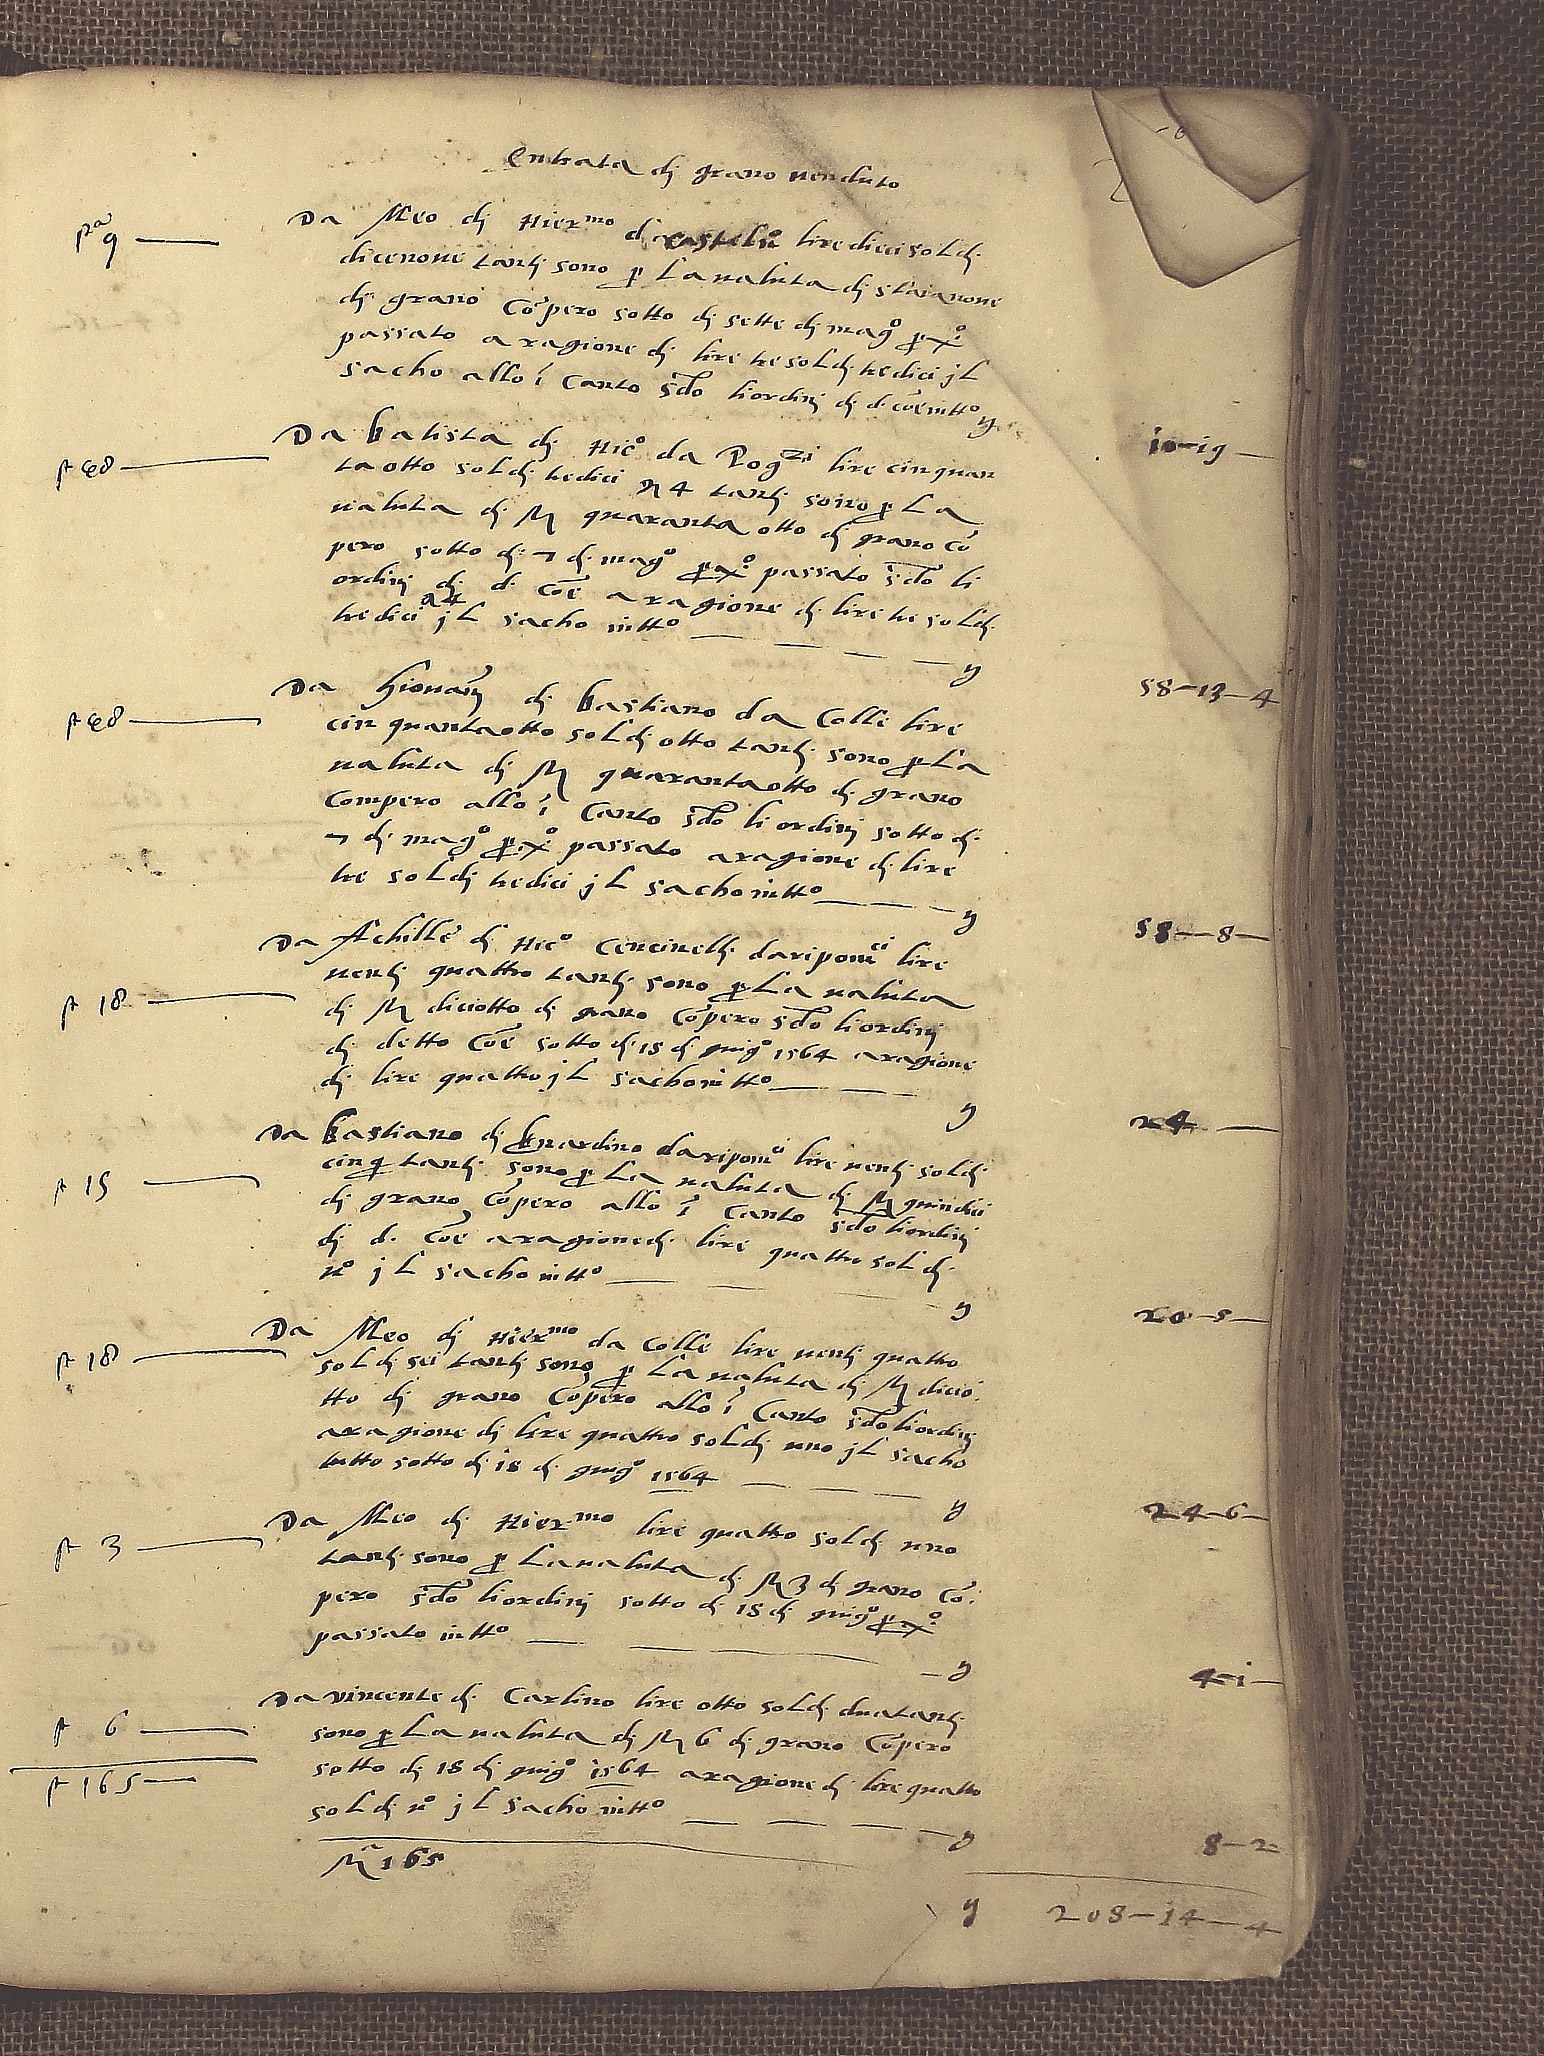 Entrata dj grano venduto
sta 9 Da Meo dj Hiermo da castelno lire dieci soldj
dicenove tantj sono p la valuta dj staianove
dj grano Cōpero sotto dj sette dj mago px°
passato aragione dj lire tre soldj tredici jL
sacho allo i Canto sdo liordinj dj d. coē intto y 10-19
st 48 Da batista dj Nico da Pogzi lire cinquan
ta otto soldj tredici 4 tantj sono p La
valuta dj st quaranta otto dj grano Cō
pero sotto dj 7 dj mago px° passato sdo li
ordinj dj d. Coē aragione dj lire tre soldj
tredici 4 jL sacho intto y 58-13-4
st 48 Da Giovanj dj bastiano da Colle lire
cinquantaotto soldj otto tantj sono p La
valuta dj st quarantaotto dj grano
Compero allo i Canto sdo li ordinj sotto dj
7 dj mago px° passato aragione dj lire
tre soldj tredici jL sacho intto y 58-8
st 18 Da Achille dj Nico Cencinellj dariponci lire
ventj quattro tantj sono p La valuta
dj st diciotto dj grano Cōpero sdo liordinj
dj detto Coē sotto dj 18 dj giugo 1564 aragione
dj lire quattro jL sacho intto y 24
st 15 Da bastiano dj bnardino dariponci lire ventj soldj
cinq tantj sono p La valuta dj st quindici
dj grano Cōpero allo i Canto sdo liordinj
dj d. Coē aragionedj lire quattro soldj
uo jL sacho intto y 20-5
st 18 Da Meo dj Hiermo da Colle lire ventj quattro
soldj sei tantj sono p La valuta dj st dicio
tto dj grano Cōpero allo i Canto sdo liordinj
aragione dj lire quattro soldj uno jL sacho
tutto sotto dj 18 dj giugo 1564 y 24-6
st 3 Da Meo dj Hiermo lire quattro soldj uno
tantj sono p La valuta dj st 3 dj grano Cō
pero sdo liordinj sotto dj 18 dj giugo px°
passato intto y 4-1
st 6 Da vincente dj Carlino lire otto soldj dua tantj
sono p La valuta dj st 6 dj grano Cōpero
sotto dj 18 dj giugo 1564 aragione dj lire quattro
soldj uo jL sacho intto y 8-2
st 165
sta 165
y 208-14-4